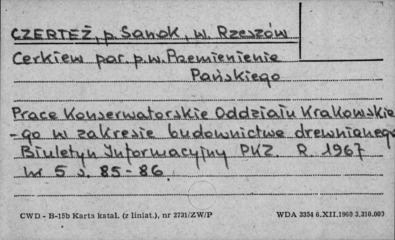 CZERTEŻ, p. Sanok, w. Rzeszów
Cerkiew par. p.w. Przemienienie
Pańskiego
Prace Konserwatorskie Oddziału Krakowskie
-go w zakresie budownictwa drewnianego
Biuletyn Informacyjny PKZ. R. 1967
nr 5 s. 85-86.
CWD - B-15b Karta katal. (z liniat.), nr 2731/ZW/P WDA 3354 6.XII.1960 3.210.000